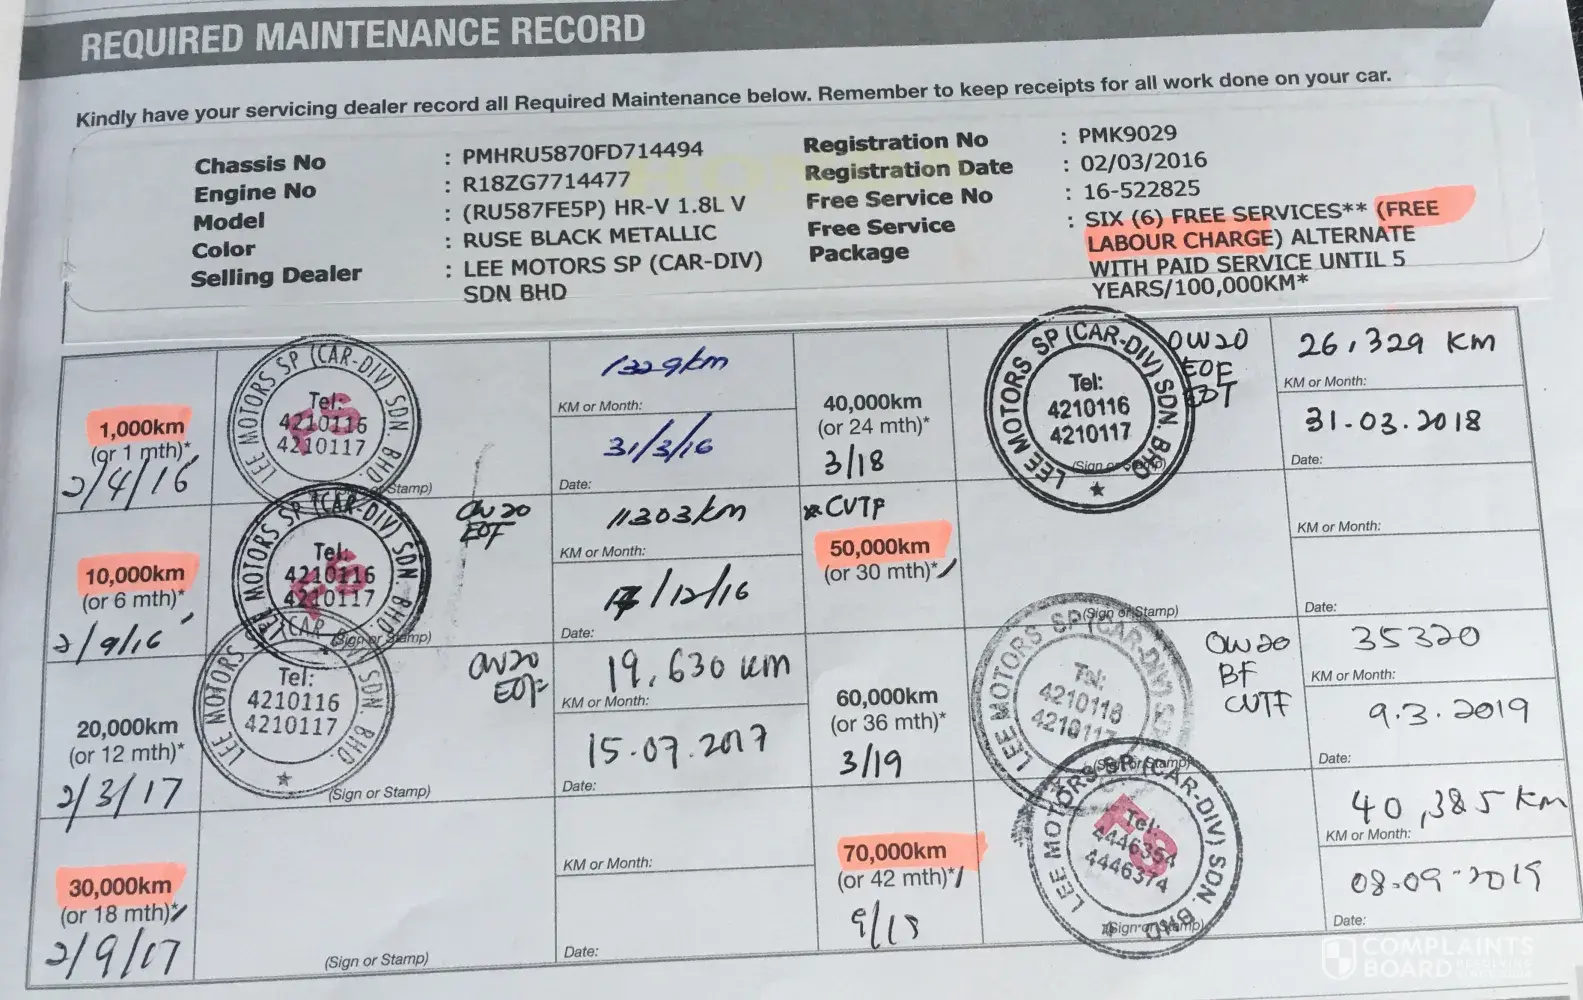 REQUIRED MAINTENANCE RECORD
Kindly have your servicing dealer record all Required Maintenance below. Remember to keep receipts for all work done on your car.
Chassis No : PMHRU5870FD714494
Engine No : R18ZG7714477
Model : (RU587FE5P) HR-V 1.8L V
Color : RUSE BLACK METALLIC
Selling Dealer : LEE MOTORS SP (CAR-DIV)
SDN BHD
Registration No : PMK9029
Registration Date : 02/03/2016
Free Service No : 16-522825
Free Service : SIX (6) FREE SERVICES** (FREE
Package LABOUR CHARGE) ALTERNATE
WITH PAID SERVICE UNTIL 5
YEARS/100,000KM*
1,000km
(or 1 mth)*
2/4/16
LEE MOTORS SP (CAR-DIV) SDN. BHD.
Tel:
4210116
4210117
FS
(Sign or Stamp)
1329km
KM or Month:
31/3/16
Date:
10,000km
(or 6 mth)*
2/9/16
LEE MOTORS SP (CAR-DIV) SDN. BHD.
Tel:
4210116
4210117
FS
(Sign or Stamp)
OW20
EOF
11303km
KM or Month:
/12/16
Date:
20,000km
(or 12 mth)*
2/3/17
LEE MOTORS SP (CAR SDN BHD.
Tel:
4210116
4210117
(Sign or Stamp)
OW20
EOF
19,630 km
KM or Month:
15.07.2017
Date:
30,000km
(or 18 mth)*
2/9/17
(Sign or Stamp)
KM or Month:
Date:
40,000km
(or 24 mth)*
3/18
* CVTF
LEE MOTORS SP (CAR-DIV) SDN. BHD
Tel:
4210116
4210117
(Sign or Stamp)
OW20
EOF
26,329 KM
KM or Month:
31.03.2018
Date:
50,000km
(or 30 mth)*
(Sign or Stamp)
KM or Month:
Date:
60,000km
(or 36 mth)*
3/19
LEE MOTORS SP (CAR-DIV)
Tel:
4210116
4210117
(Sign or Stamp)
OW20
BF
CVTF
35320
KM or Month:
9.3.2019
Date:
70,000km
(or 42 mth)*
LEE MOTORS SP (CAR-DIV) SDN. BHD
Tel:
4446354
4446374
FS
(Sign or Stamp)
40,385 Km
KM or Month:
08-09-2019
Date:
COMPLAINTS
BOARD